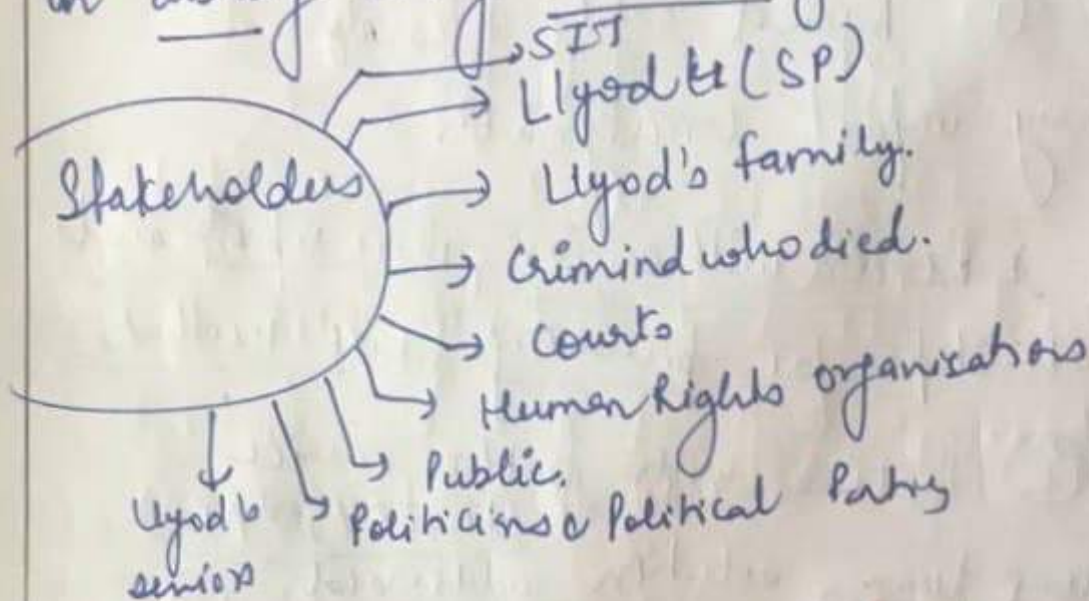 in
SIT
Llyod (SP)
Stakeholders
Llyod's family.
Criminal who died.
Courts
Human Rights organisations
Public.
Politicians & Political Parties
Llyod's
seniors